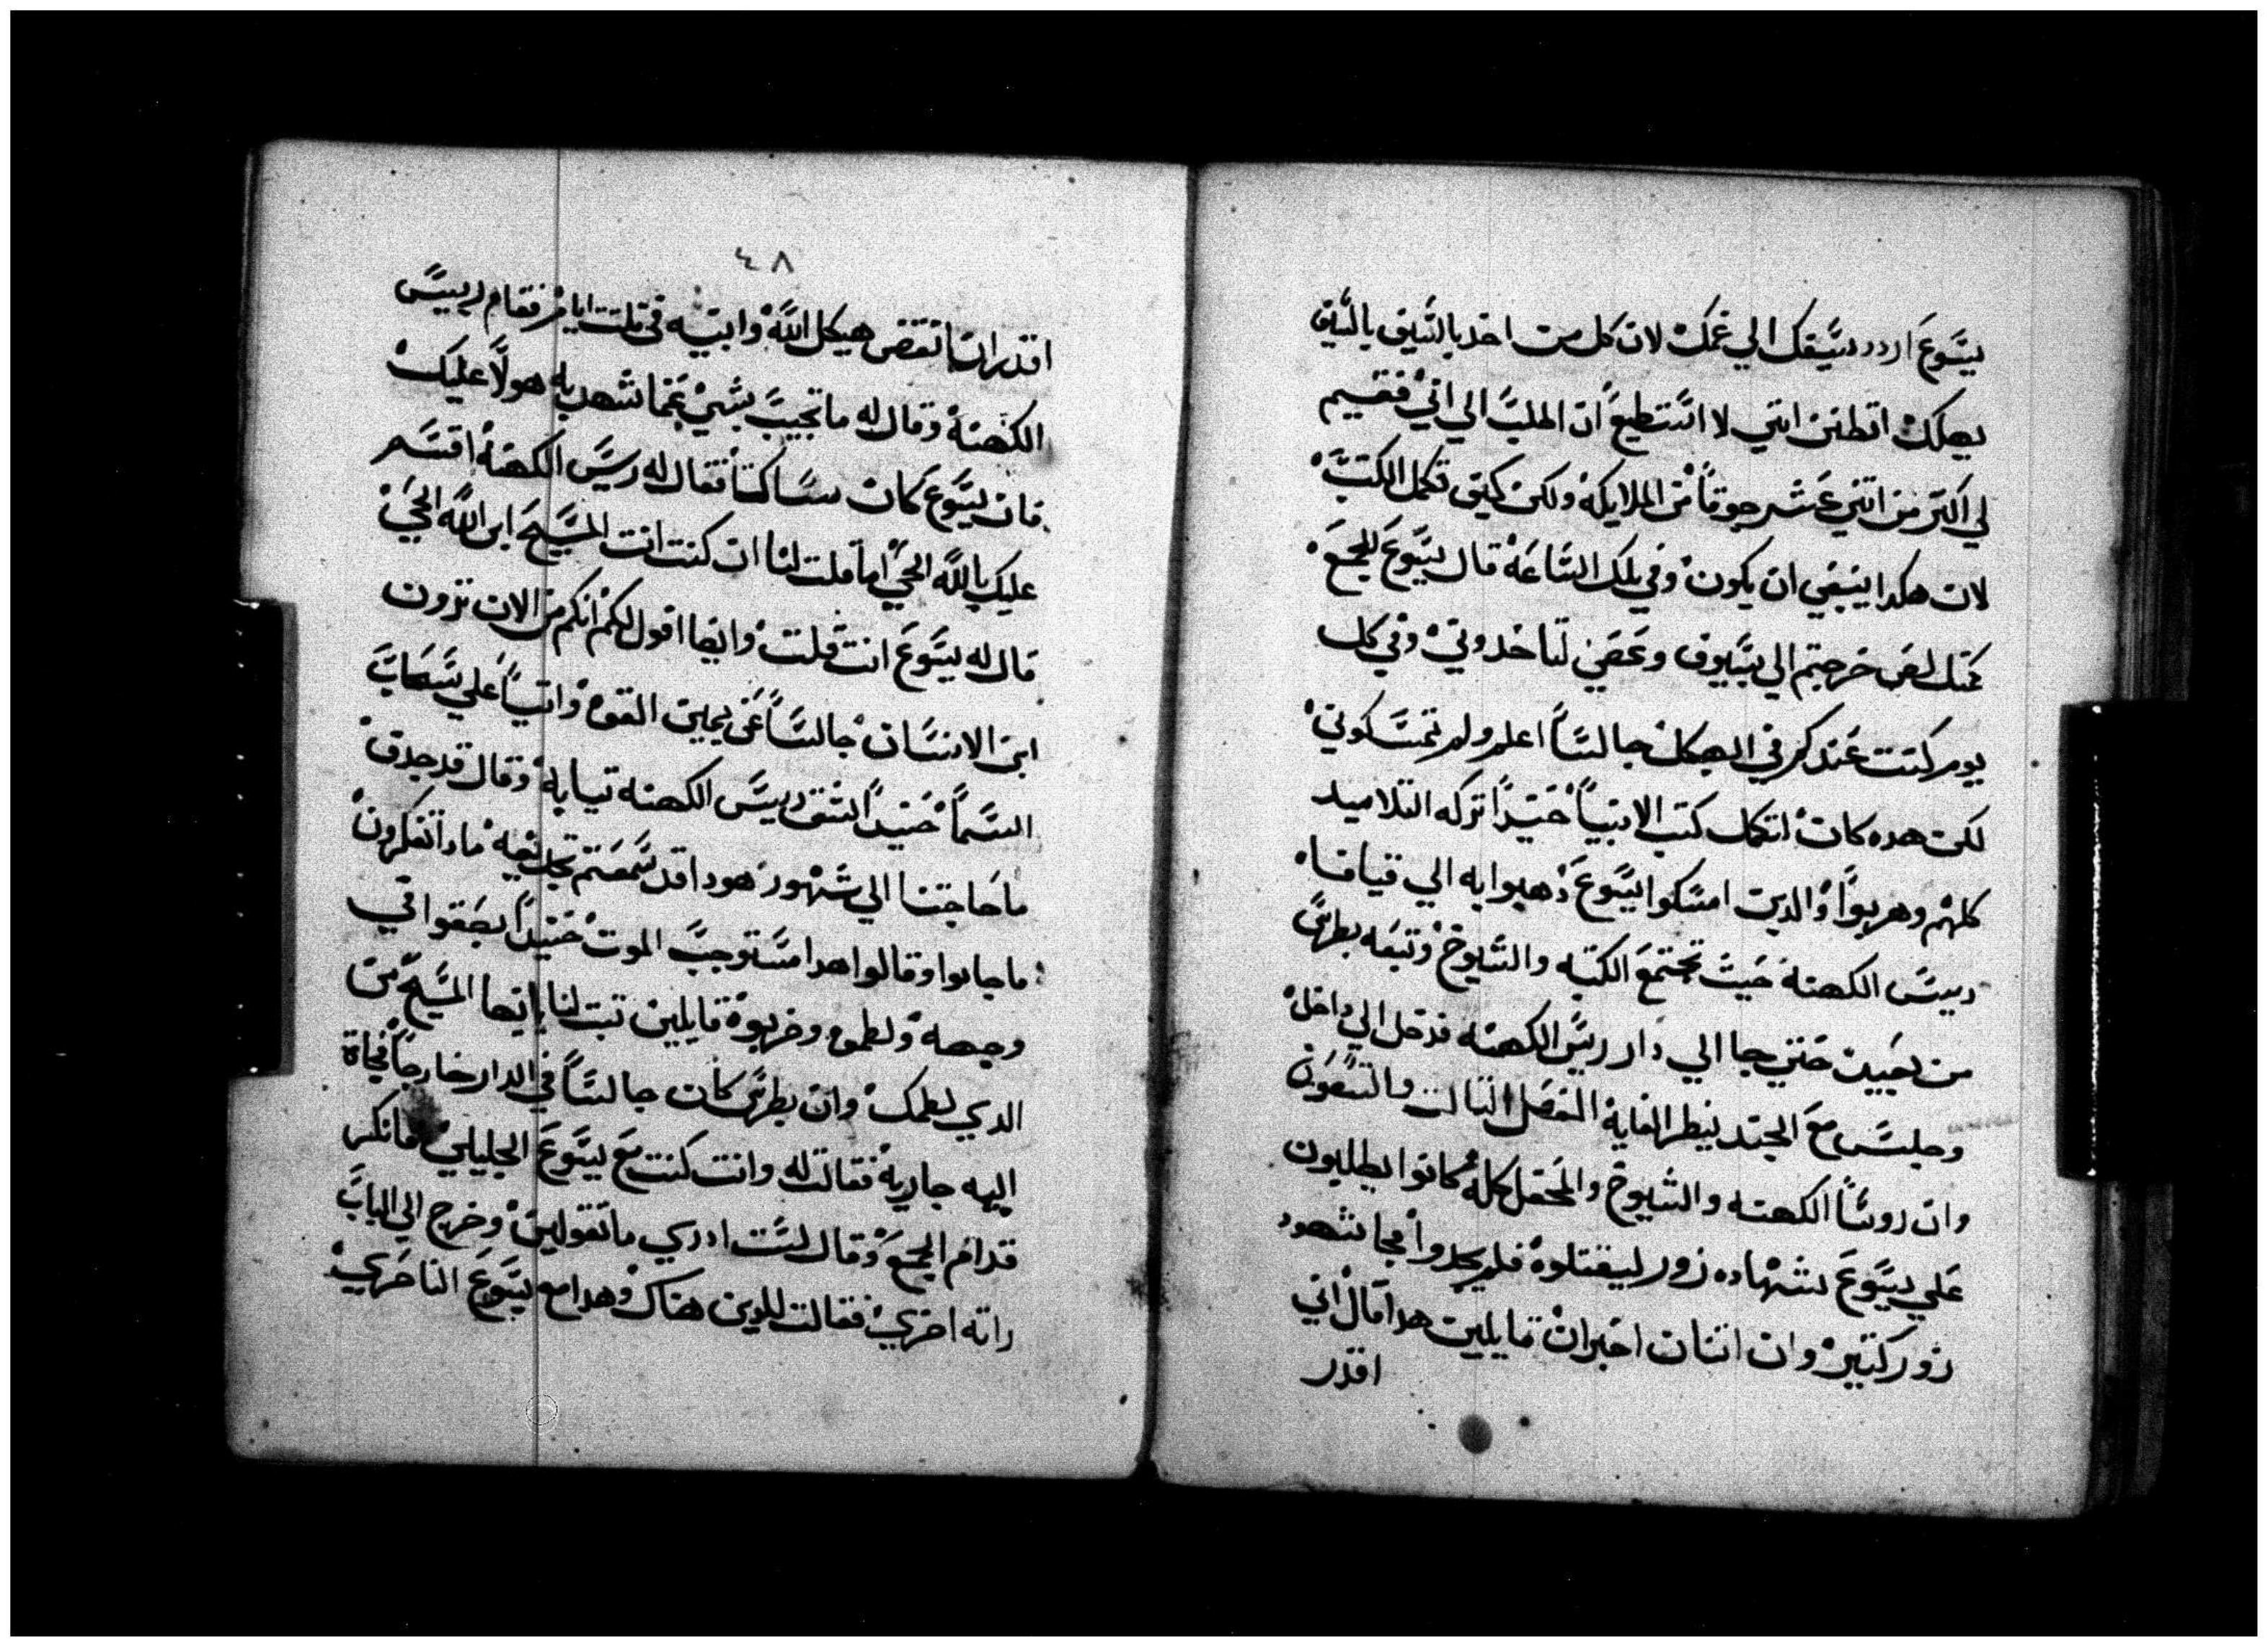 يسوع اردد سيفك الي غمك لان كل من اخد بالسيف بالسيف
يهلك اتظنن انني لا استطيع ان اطلب الي ابي فيقيم
لي اكتر من اتني عشر جوقا من الملايكه ولكن كيف تكمل الكتب
لان هكدا ينبغي ان يكون وفي تلك الساعه قال يسوع للجمع
كمتل لص خرجتم الي بسيوف وعصي لتاخدوني وفي كل
يوم كنت عندكم في الهيكل جالسا اعلم ولم تمسكوني
لكن هده كانت لتكمل كتب الانبيا حنيدا تركه التلاميد
كلهم وهربوا والدين امسكوا يسوع دهبوا به الي قيافا
رييس الكهنه حيت تجتمع الكتبه والشيوخ وتبعه بطرس
من بعيد حتي جا الي دار رييس الكهنه فدخل الي داخل
وجلس مع الجند لينظر الغايه الفصل التالت والتسعون
وان روسا الكهنه والشيوخ والمحفل كله كانوا يطلبون
علي يسوع شهاده زور ليقتلوه فلم يجدوا فجا شهود
زور كتير وان اتنان اخبران قايلين هدا قال اني
اقدر
٤٨
اقدر ان انقض هيكل الله وابنيه في تلت ايام فقام رييس
الكهنه وقال له ما تجيب بشي عما شهد به هولا عليك
فان يسوع كان ساكتا فقال له رييس الكهنه اقسم
عليك بالله الحي اما قلت لنا ان كنت انت المسيح ابن الله الحي
قال له يسوع انت قلت وايضا اقول لكم انكم من الان ترون
ابن الانسان جالسا عن يمين القوه واتيا علي سحاب
السما حنيدا شق رييس الكهنه تيابه وقال قد جدف
ما حاجتنا الي شهود هودا قد سمعتم تجديفه مادا تفكرون
ما جابوا وقالوا هدا مستوجب الموت حنيدا بصقوا في
وجهه ولطموه وضربوه قايلين تبت لنا ايها المسيح من
الدي لطمك وان بطرس كان جالسا في الدار خارجا فجاة
اليه جاريه فقالت له وانت كنت مع يسوع الجليلي فانكر
قدام الجمع وقال لست ادري ما تقولين وخرج الي الباب
راته اخري فقالت للدين هناك وهدا مع يسوع الناصري